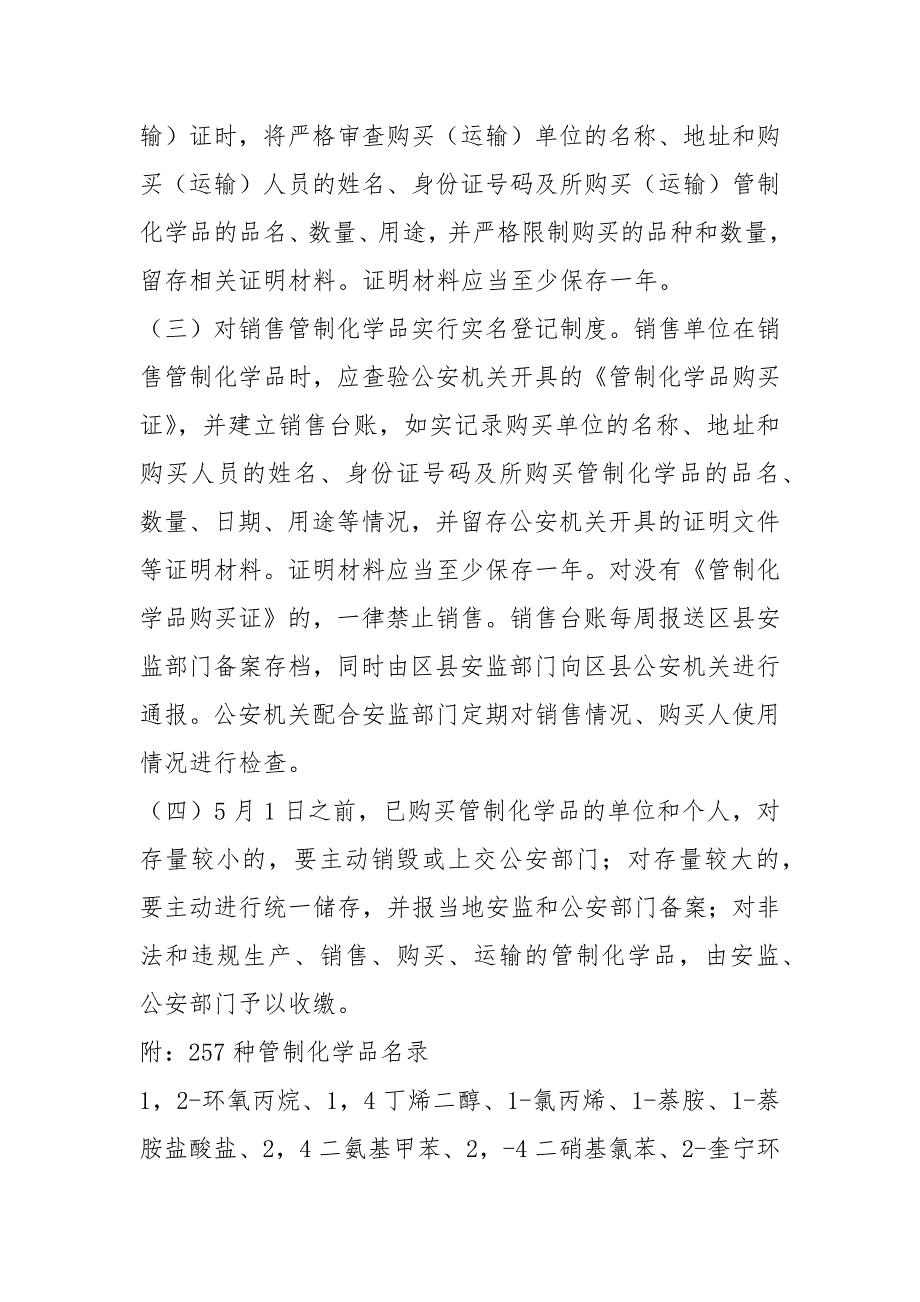 输）证时，将严格审查购买（运输）单位的名称、地址和购
买（运输）人员的姓名、身份证号码及所购买（运输）管制
化学品的品名、数量、用途，并严格限制购买的品种和数量，
留存相关证明材料。证明材料应当至少保存一年。
（三）对销售管制化学品实行实名登记制度。销售单位在销
售管制化学品时，应查验公安机关开具的《管制化学品购买
证》，并建立销售台账，如实记录购买单位的名称、地址和
购买人员的姓名、身份证号码及所购买管制化学品的品名、
数量、日期、用途等情况，并留存公安机关开具的证明文件
等证明材料。证明材料应当至少保存一年。对没有《管制化
学品购买证》的，一律禁止销售。销售台账每周报送区县安
监部门备案存档，同时由区县安监部门向区县公安机关进行
通报。公安机关配合安监部门定期对销售情况、购买人使用
情况进行检查。
（四）5月1日之前，已购买管制化学品的单位和个人，对
存量较小的，要主动销毁或上交公安部门；对存量较大的，
要主动进行统一储存，并报当地安监和公安部门备案；对非
法和违规生产、销售、购买、运输的管制化学品，由安监、
公安部门予以收缴。
附：257种管制化学品名录
1，2-环氧丙烷、1，4丁烯二醇、1-氯丙烯、1-萘胺、1-萘
胺盐酸盐、2，4二氨基甲苯、2，-4二硝基氯苯、2-奎宁环